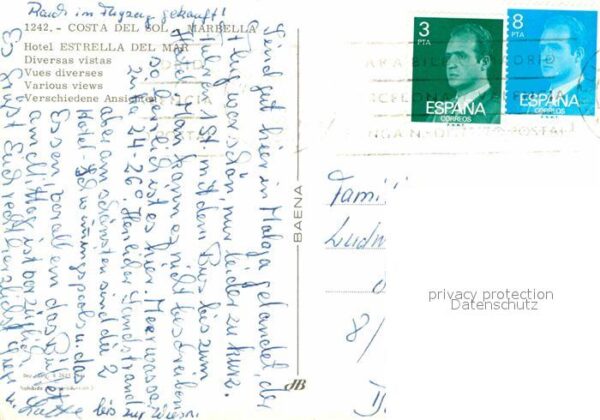 Rauch im Flugzeug gekauft!
1242.- COSTA DEL SOL - MARBELLA
Hotel ESTRELLA DEL MAR
Diversas vistas
Vues diverses
Various views
Verschiedene Ansichten
Sind gut hier in Malaga gelandet, der
Flug war schön, nur leider zu kurz.
1 St. mit dem Bus bis zum
Hotel. Man kann es nicht beschreiben
so herrlich ist es hier. Meerwasser
24-26° herrlicher Sandstrand
aber am schönsten sind die 2
Hotel-Swimmingpools u. das
Essen, vor allem das Buffet
am Mittag ist vorzüglich.
Es grüsst Euch recht herzlichst
u.
bis zur Wiesn.
BAENA
JB
3
PTA
ESPAÑA
CORREOS
8
PTA
ESPAÑA
CORREOS
Fami
Ludw
8/
privacy protection
Datenschutz